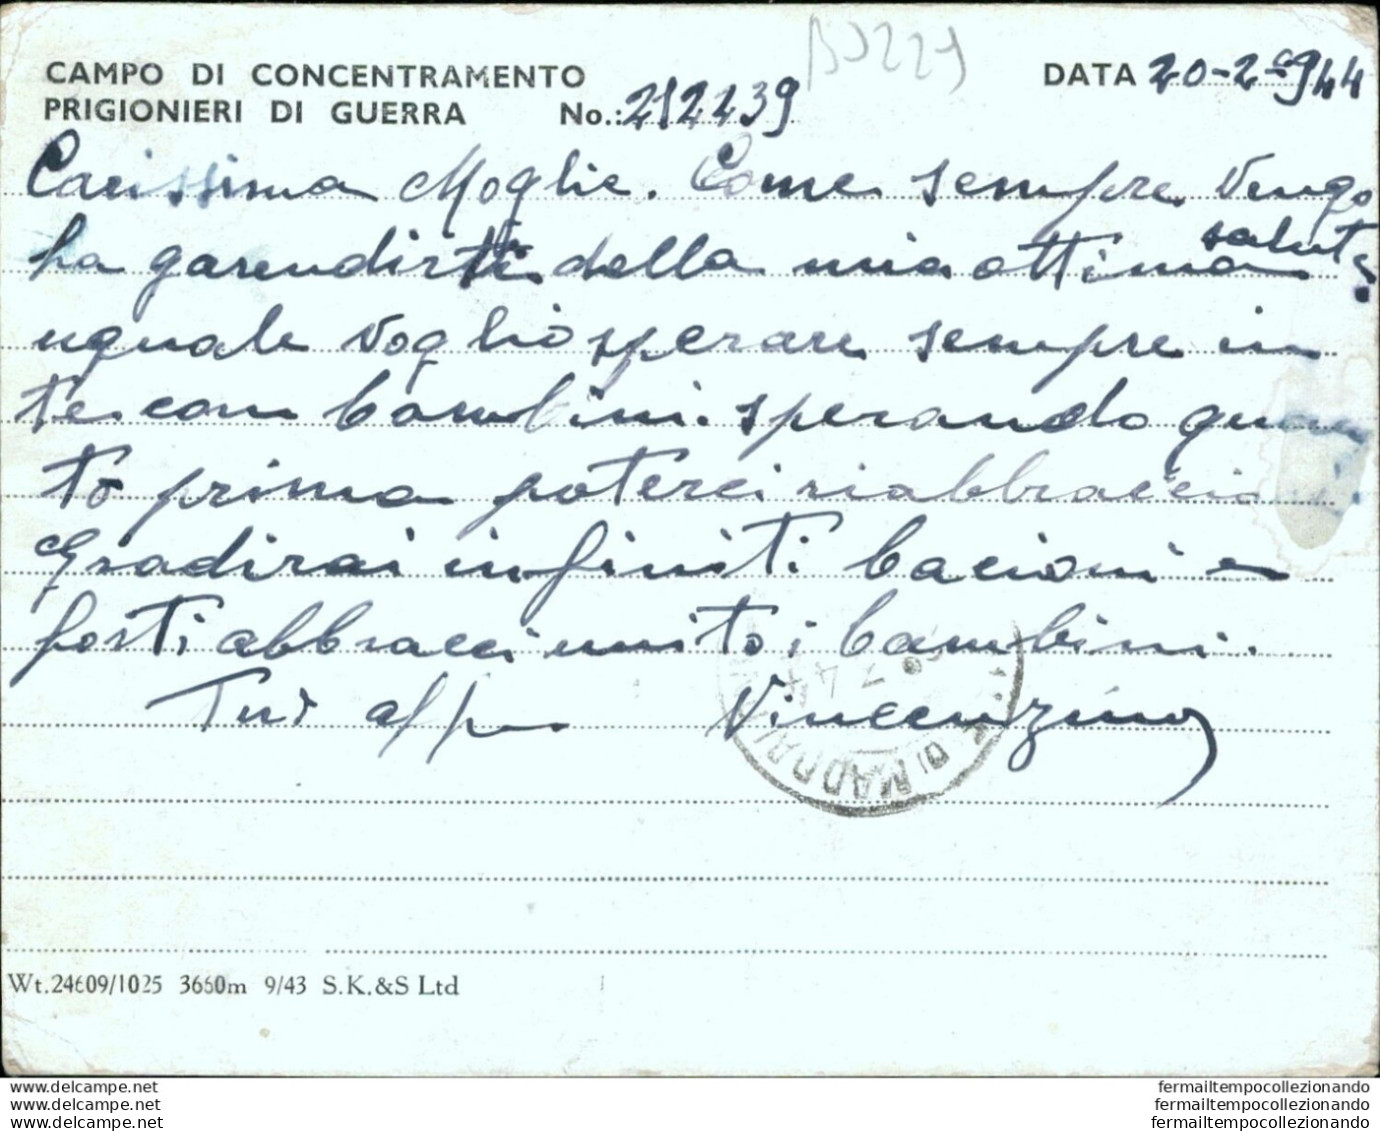 BJ229
CAMPO DI CONCENTRAMENTO
DATA 20-2-944
PRIGIONIERI DI GUERRA No.: 212239
Carissima Moglie. Come sempre vengo
ha garendirti della mia ottima salute.
uguale voglio sperare sempre in
te con bambini. sperando quan
to prima poterci riabbraccia
Gradirai infiniti bacioni e
forti abbracci unito i bambini.
Tuo aff Vincenzino
DI MADD
7 44
Wt.24609/1025 3660m 9/43 S.K.&S Ltd
www.delcampe.net
www.delcampe.net
www.delcampe.net
fermailtempocollezionando
fermailtempocollezionando
fermailtempocollezionando